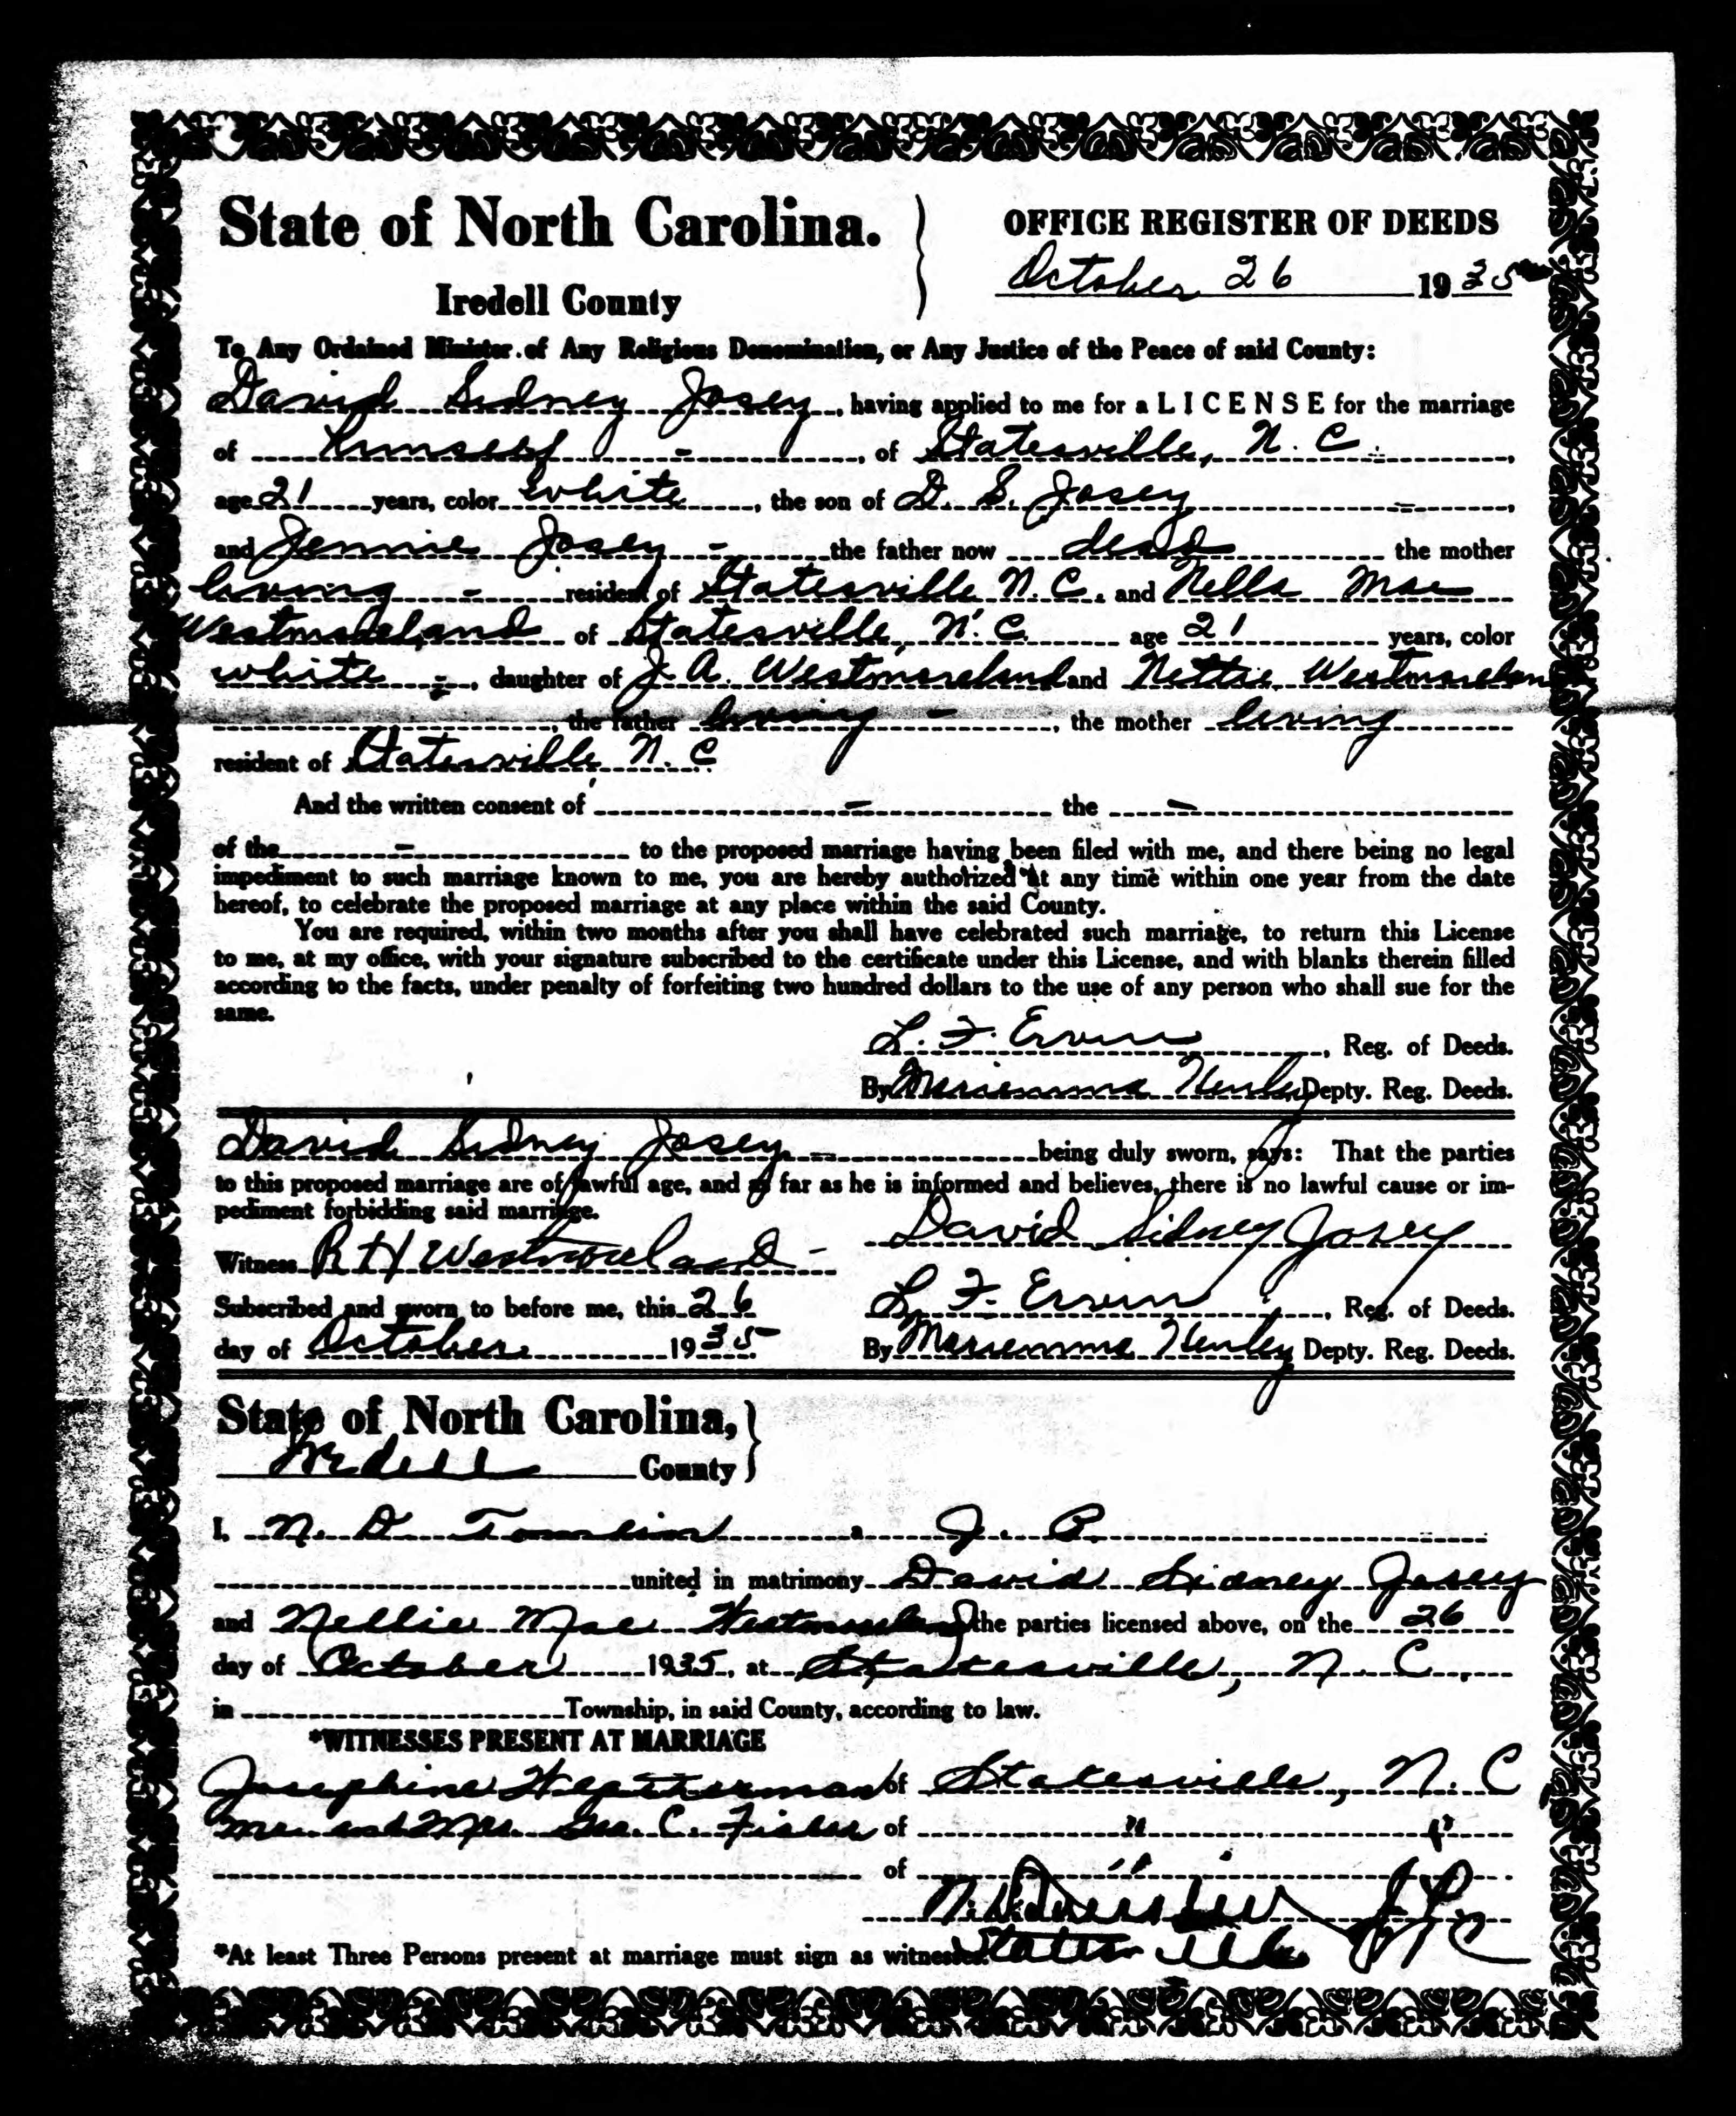 State of North Carolina. OFFICE REGISTER OF DEEDS
October 26 1935
Iredell County
To Any Ordained Minister of Any Religious Denomination, or Any Justice of the Peace of said County:
David Sidney Josey, having applied to me for a LICENSE for the marriage
of himself -, of Statesville, N. C. -,
age 21 years, color white, the son of D. S. Josey -,
and Jennie Josey - the father now dead the mother
living - resident of Statesville N. C. and Nella Mae
Westmoreland of Statesville, N. C. age 21 years, color
white -, daughter of J. A. Westmoreland and Nettie Westmoreland
, the father living -, the mother living
resident of Statesville, N. C
And the written consent of - the -
of the - to the proposed marriage having been filed with me, and there being no legal
impediment to such marriage known to me, you are hereby authorized at any time within one year from the date
hereof, to celebrate the proposed marriage at any place within the said County.
You are required, within two months after you shall have celebrated such marriage, to return this License
to me, at my office, with your signature subscribed to the certificate under this License, and with blanks therein filled
according to the facts, under penalty of forfeiting two hundred dollars to the use of any person who shall sue for the
same.
L. F. Ervin, Reg. of Deeds.
By Mariemma Henley Depty. Reg. Deeds.
David Sidney Josey - being duly sworn, says: That the parties
to this proposed marriage are of lawful age, and as far as he is informed and believes, there is no lawful cause or im-
pediment forbidding said marriage.
David Sidney Josey
Witness R H Westmoreland -
Subscribed and sworn to before me, this 26 L. F. Ervin, Reg. of Deeds.
day of October 1935 By Mariemma Henley Depty. Reg. Deeds.
State of North Carolina,
Iredell County
I, N. D. Tomlin a J. P.
united in matrimony David Sidney Josey
and Nellie Mae Westmoreland the parties licensed above, on the 26
day of October 1935, at Statesville, N. C.,
in Township, in said County, according to law.
*WITNESSES PRESENT AT MARRIAGE
Josephine of Statesville, N. C
Mr. and Mrs. Geo. C. of " "
of "
N. D. Tomlin J. P.
*At least Three Persons present at marriage must sign as witnesses. Statesville N C